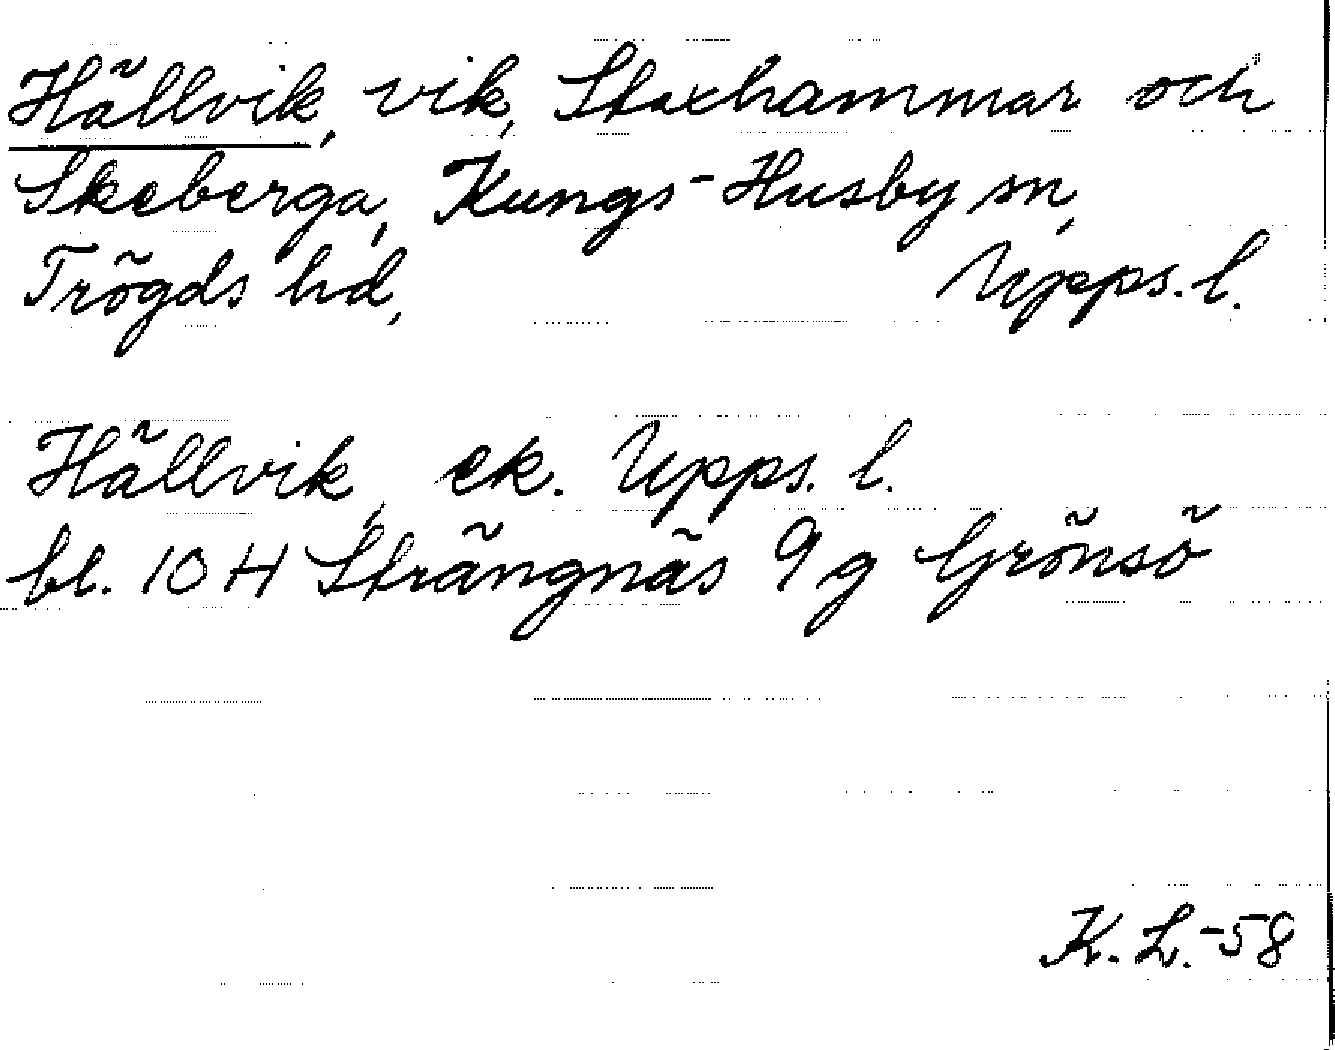 Hällvik, vik, Staxhammar och
Skeberga, Kungs-Husby sn,
Trögds hd, Upps. l.
Hällvik, ek. Upps. l.
bl. 10 H Strängnäs 9 g Grönsö
K. L. -58